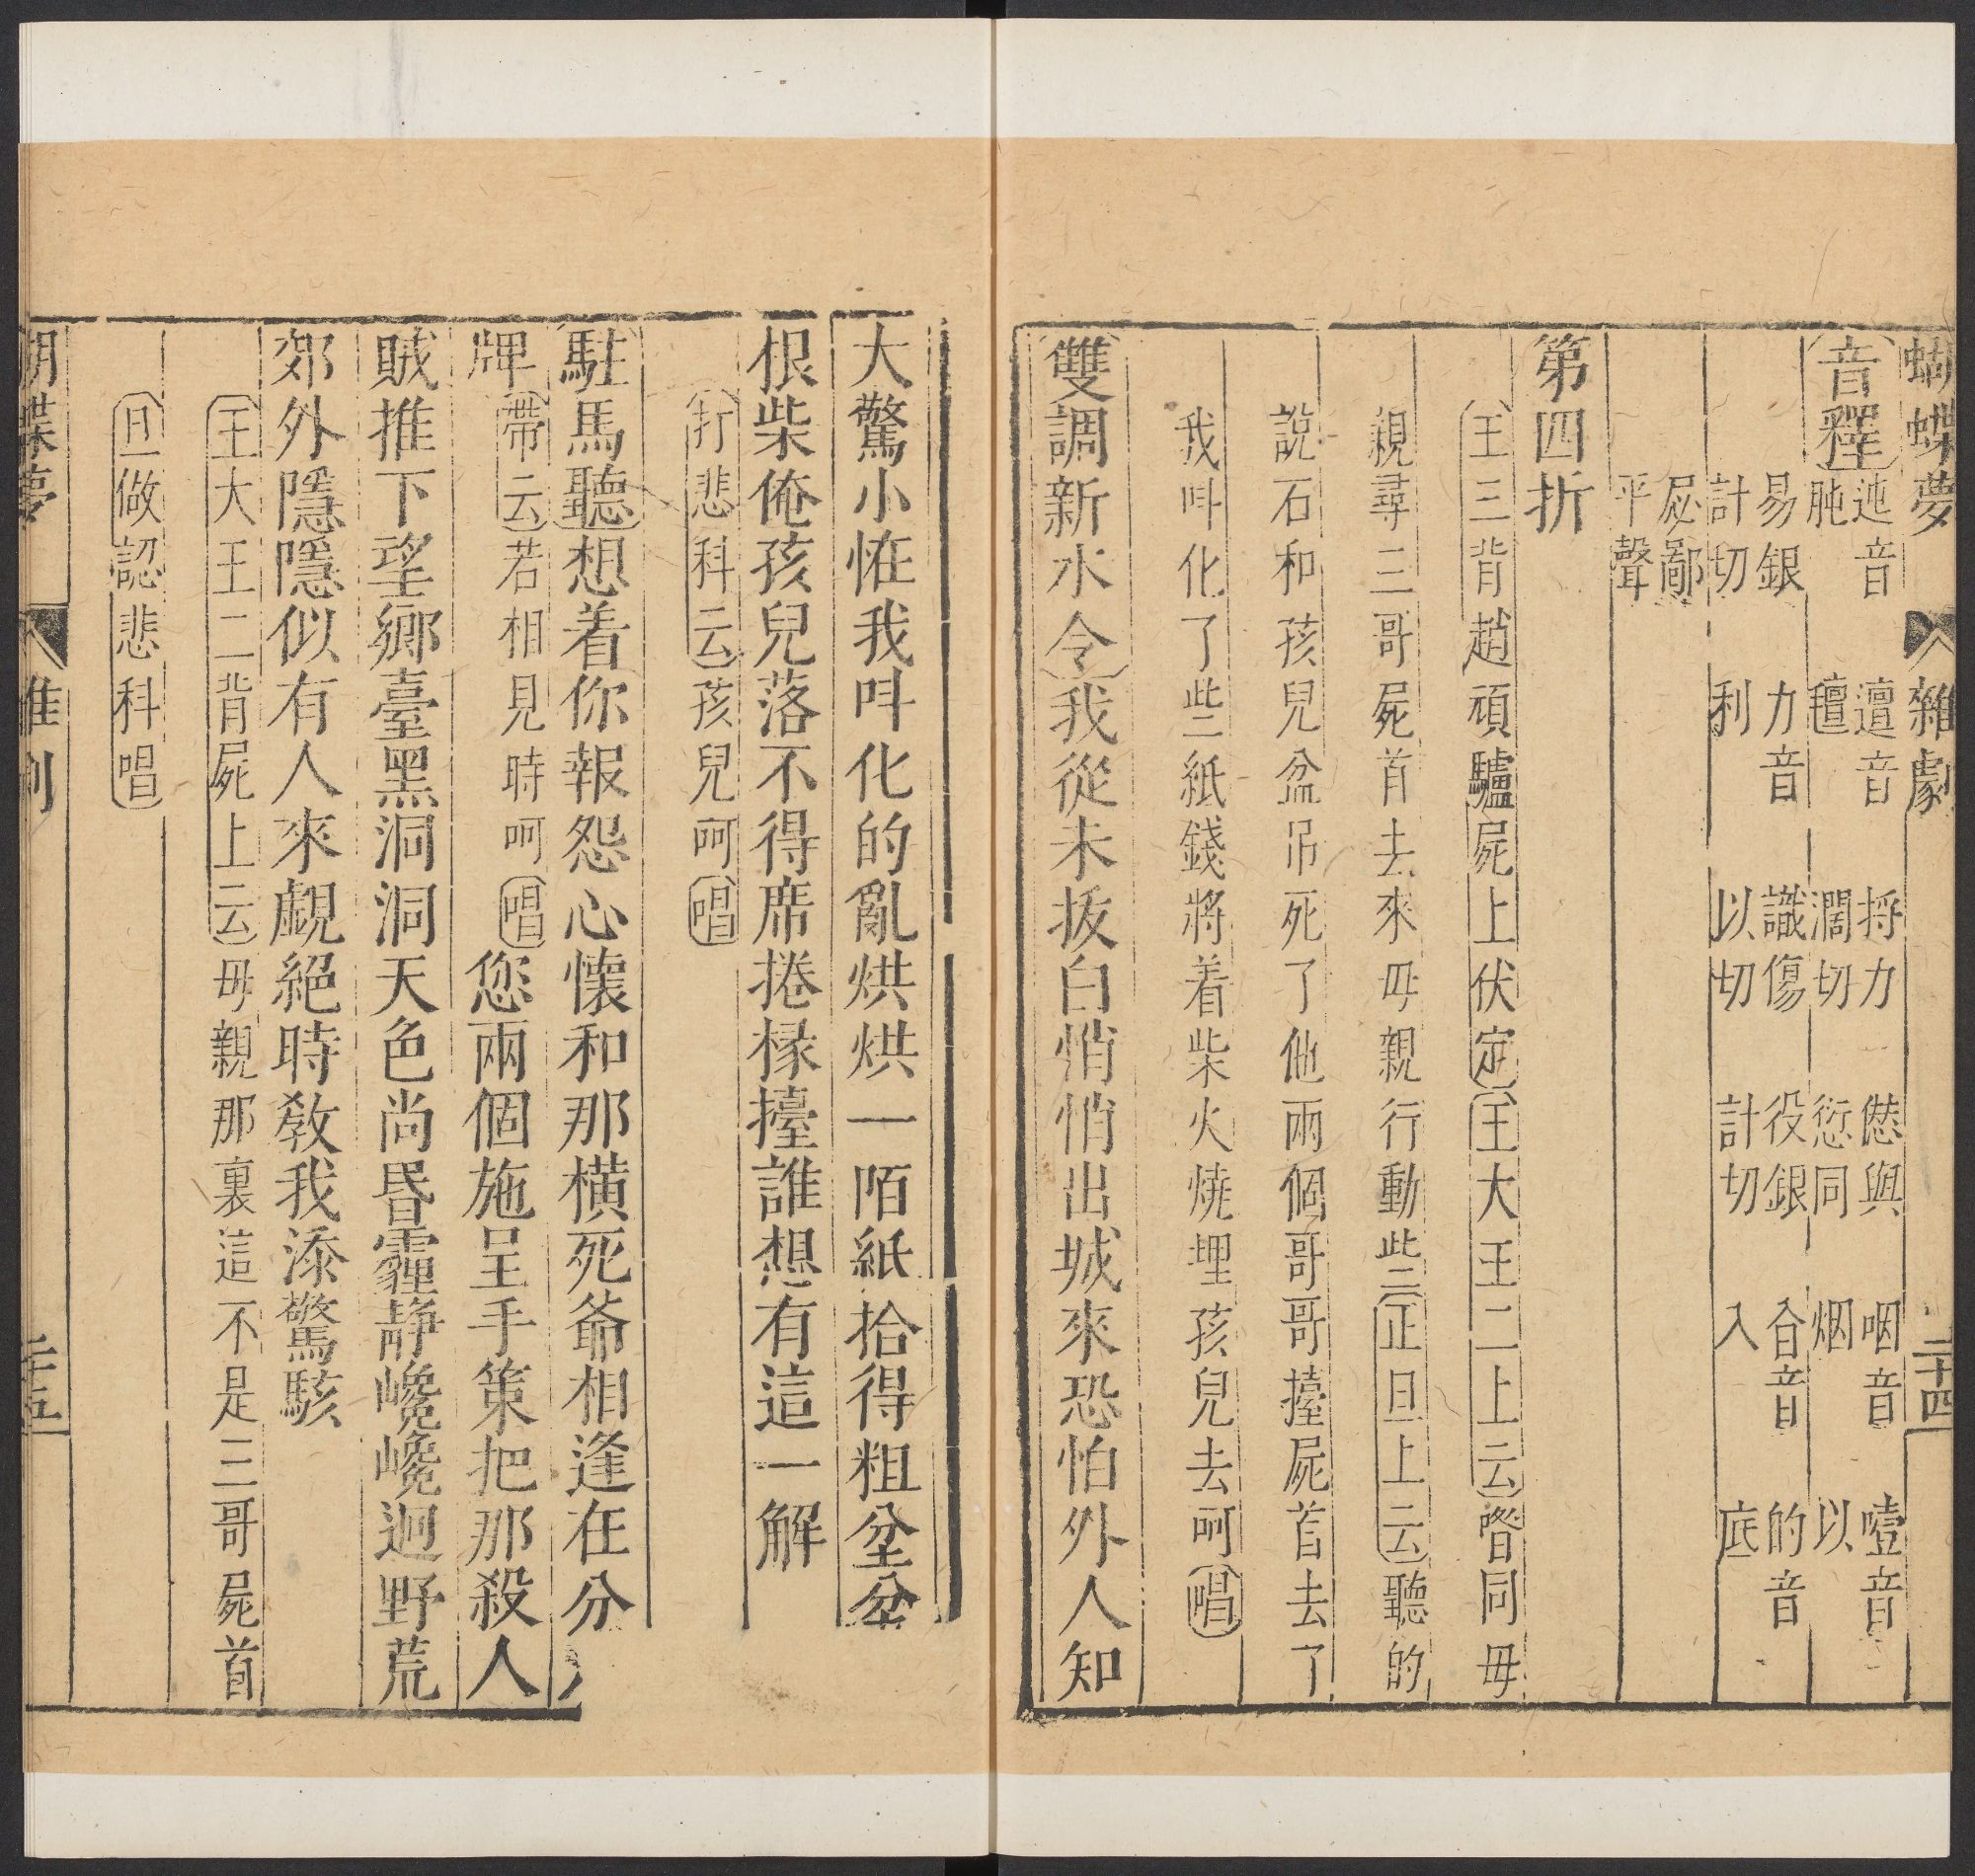 蝴蝶夢 雜劇 二十四
音釋 迍音肫 邅音氊 捋力濶切 㥛與愆同 咽音烟 噎音以
易銀計切 力音利 識傷以切 役銀計切 音入 的音底
鄙平聲
第四折
王三背趙頑驢屍上伏定王大王二上云喒同毋
親尋三哥屍首去來毋親行動些正旦上云聽的
說石和孩兒盆吊死了他兩個哥哥擡屍首去了
我呌化了些紙錢將着柴火燒埋孩兒去呵唱
雙調新水令我從未拔白悄悄出城來恐怕外人知
大驚小恠我呌化的亂烘烘一陌紙拾得粗坌坌
根柴俺孩兒落不得席捲椽擡誰想有這一解
打悲科云孩兒呵唱
駐馬聽想着你報怨心懷和那橫死爺相逢在分
牌帶云若相見時呵唱您兩個施呈手策把那殺人
賊推下望鄉臺黑洞洞天色尚昬霾静巉巉迥野荒
郊外隱隱似有人來覷絕時教我添驚駭
王大王二背屍上云毋親那裏這不是三哥屍首
旦做認悲科唱
蝴蝶夢 雜劇 二十五